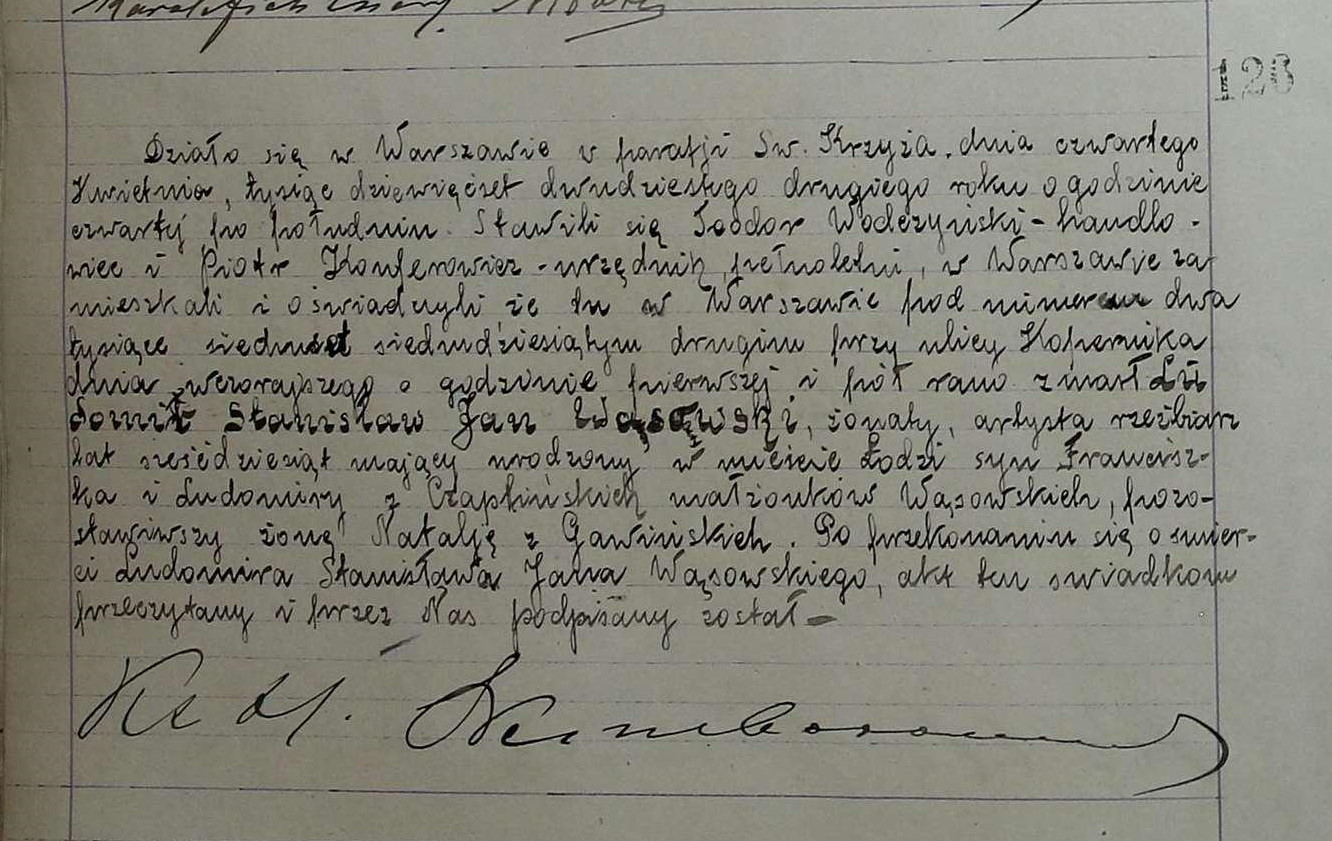 126
Działo się w Warszawie w parafji Św. Krzyża, dnia czwartego
Kwietnia, tysiąc dziewięćset dwudziestego drugiego roku o godzinie
czwartej po południu. Stawili się Teodor Wodczyński - handlo-
wiec i Piotr Konferowicz - urzędnik, pełnoletni, w Warszawie za
mieszkali i oświadczyli że tu w Warszawie pod numerem dwa
tysiące siedmset siedmdziesiątym drugim przy ulicy Kopernika
dnia wczorajszego o godzinie pierwszej i pół rano zmarł Lu
domir Stanisław Jan Wąsowski, żonaty, artysta rzeźbiarz
lat sześćdziesiąt mający urodzony w mieście Łodzi syn Francisz-
ka i Ludomiry z Czaplińskich małżonków Wąsowskich, pozo-
stawiwszy żonę Natalję z Gawińskich. Po przekonaniu się o śmier-
ci Ludomira Stanisława Jana Wąsowskiego, akt ten świadkom
przeczytany i przez Nas podpisany został -